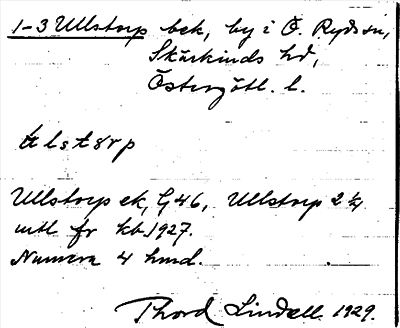 1-3 Ullstorp bek, by i Ö. Ryds sn,
Skärkinds hd,
Östergötl. l.
Ullstorp ek, G 46, Ullstorp 2 ½
mtl fr kb 1927.
Numera 4 hmd.
Thord Lindell 1929.